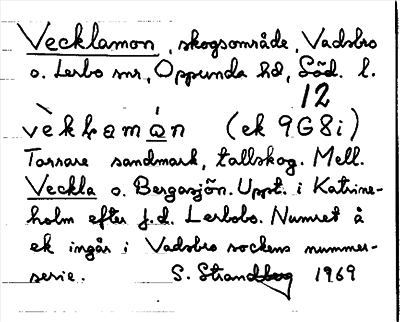 Vecklamon, skogsområde, Vadsbro
o. Lerbo snr, Oppunda hd, Söd. l.
12
vèkḷamọ́n (ek 9G8i)
Torrare sandmark, tallskog. Mell.
Veckla o. Bergasjön. Uppt. i Katrine-
holm efter f.d. Lerbobo. Numret å
ek ingår i Vadsbro sockens nummer-
serie. S. Strandberg 1969